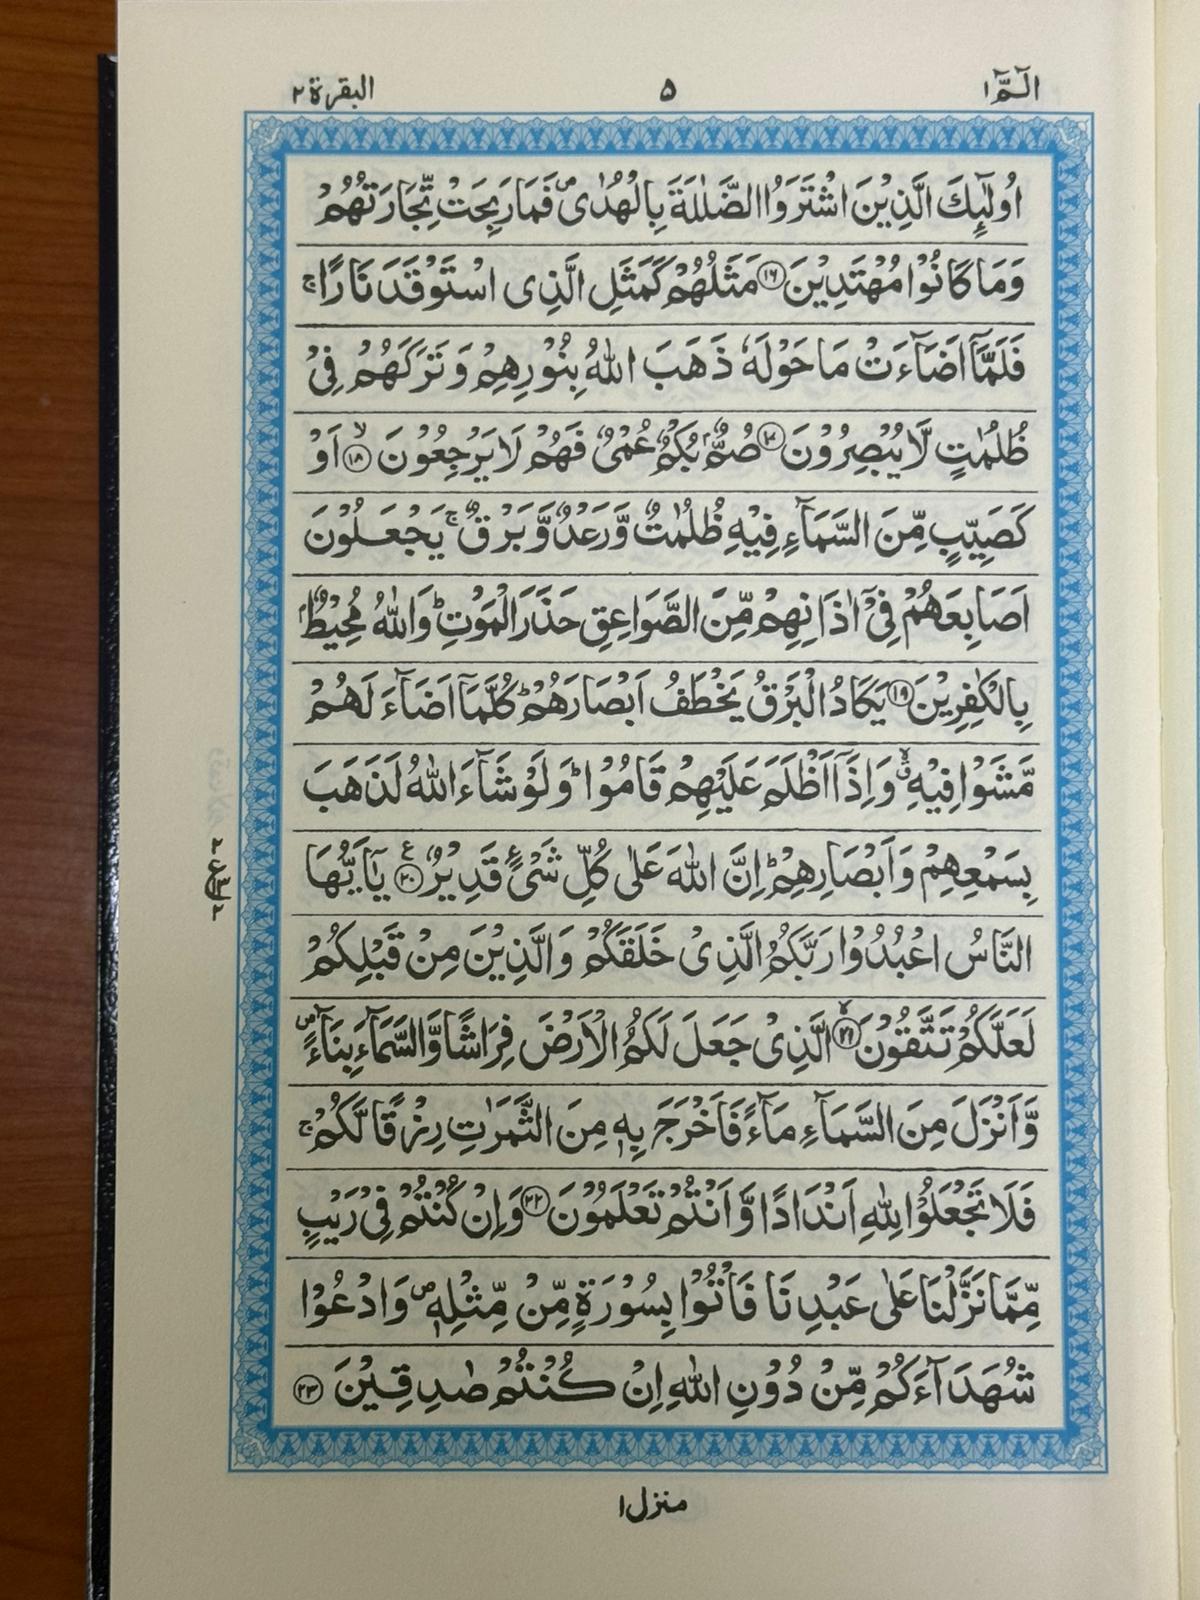 الٓمّٓ ١ ٥ البقرة ٢
اُولٰٓئِكَ الَّذِيْنَ اشْتَرَوُا الضَّلٰلَةَ بِالْهُدٰى ۪ فَمَا رَبِحَتْ تِّجَارَتُهُمْ
وَمَا كَانُوْا مُهْتَدِيْنَ ﴿١٦﴾ مَثَلُهُمْ كَمَثَلِ الَّذِى اسْتَوْقَدَ نَارًا ۚ
فَلَمَّآ اَضَآءَتْ مَا حَوْلَهٗ ذَهَبَ اللّٰهُ بِنُوْرِهِمْ وَتَرَكَهُمْ فِىْ
ظُلُمٰتٍ لَّا يُبْصِرُوْنَ ﴿١٧﴾ صُمٌّۢ بُكْمٌ عُمْىٌ فَهُمْ لَا يَرْجِعُوْنَ ﴿١٨﴾ ۙ اَوْ
كَصَيِّبٍ مِّنَ السَّمَآءِ فِيْهِ ظُلُمٰتٌ وَّرَعْدٌ وَّبَرْقٌ ۚ يَجْعَلُوْنَ
اَصَابِعَهُمْ فِىْٓ اٰذَانِهِمْ مِّنَ الصَّوَاعِقِ حَذَرَ الْمَوْتِ ؕ وَاللّٰهُ مُحِيْطٌۢ
بِالْكٰفِرِيْنَ ﴿١٩﴾ يَكَادُ الْبَرْقُ يَخْطَفُ اَبْصَارَهُمْ ؕ كُلَّمَآ اَضَآءَ لَهُمْ
مَّشَوْا فِيْهِ ۙۗ وَاِذَآ اَظْلَمَ عَلَيْهِمْ قَامُوْا ؕ وَلَوْ شَآءَ اللّٰهُ لَذَهَبَ
بِسَمْعِهِمْ وَاَبْصَارِهِمْ ؕ اِنَّ اللّٰهَ عَلٰى كُلِّ شَىْءٍ قَدِيْرٌ ﴿٢٠﴾ ع يٰٓاَيُّهَا
النَّاسُ اعْبُدُوْا رَبَّكُمُ الَّذِىْ خَلَقَكُمْ وَالَّذِيْنَ مِنْ قَبْلِكُمْ
لَعَلَّكُمْ تَتَّقُوْنَ ﴿٢١﴾ ۙ الَّذِىْ جَعَلَ لَكُمُ الْاَرْضَ فِرَاشًا وَّالسَّمَآءَ بِنَآءً ۪
وَّاَنْزَلَ مِنَ السَّمَآءِ مَآءً فَاَخْرَجَ بِهٖ مِنَ الثَّمَرٰتِ رِزْقًا لَّكُمْ ۚ
فَلَا تَجْعَلُوْا لِلّٰهِ اَنْدَادًا وَّاَنْتُمْ تَعْلَمُوْنَ ﴿٢٢﴾ وَاِنْ كُنْتُمْ فِىْ رَيْبٍ
مِّمَّا نَزَّلْنَا عَلٰى عَبْدِنَا فَاْتُوْا بِسُوْرَةٍ مِّنْ مِّثْلِهٖ ۪ وَادْعُوْا
شُهَدَآءَكُمْ مِّنْ دُوْنِ اللّٰهِ اِنْ كُنْتُمْ صٰدِقِيْنَ ﴿٢٣﴾
منزل ١